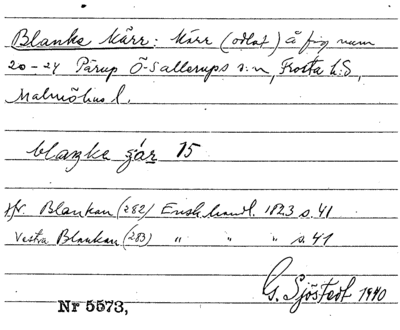 Blanka Kärr: Kärr (odlat) å fig num
20-24 Pärup Ö-Sallerups s:n, Frosta h:d,
Malmöhus l.
blaŋka ʒár 15
Jfr. Blankan (282) Ensk. handl. 1823 s. 41
Vestra Blankan (283) " " " s. 41
G. Sjöstedt 1940
Nr 5573,